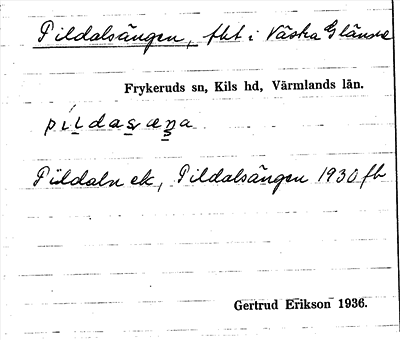 Pildalsängen, fht i Västra Glänne
Frykeruds sn, Kils hd, Värmlands län.
píldasæŋa
Pildaln ek, Pildalsängen 1930 fb
Gertrud Erikson 1936.